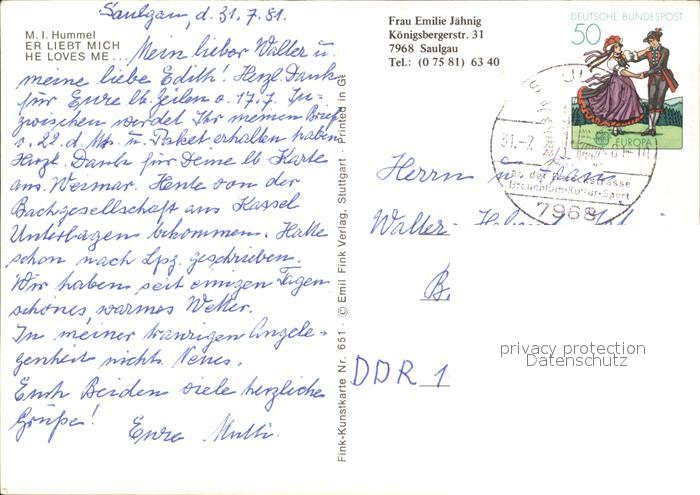 Saulgau, d. 31.7.81.
M. I. Hummel
ER LIEBT MICH
HE LOVES ME...
Mein lieber Walter u.
meine liebe Edith! Herzl. Dank
für Eure lb. Zeilen v. 17.7. In-
zwischen werdet Ihr meinen Brief
v. 22. d. Mts. u. Paket erhalten haben.
Herzl. Dank für Deine lb. Karte
aus Weimar. Heute von der
Bachgesellschaft aus Kassel
Unterlagen bekommen. Hatte
schon nach Lpzg. geschrieben.
Wir haben seit einigen Tagen
schönes warmes Wetter.
In meiner traurigen Angele-
genheit nichts Neues.
Euch Beiden viele herzliche
Grüße!
Eure Mutti.
Fink-Kunstkarte Nr. 651 · © Emil Fink Verlag, Stuttgart · Printed in Ge
Frau Emilie Jähnig
Königsbergerstr. 31
7968 Saulgau
Tel.: (0 75 81) 63 40
DEUTSCHE BUNDESPOST
50
EUROPA
31.-7.
an der Barockstrasse
Brauchtum·Kultur·Sport
7968
Herrn u. Frau
Walter
B.
DDR 1
privacy protection
Datenschutz